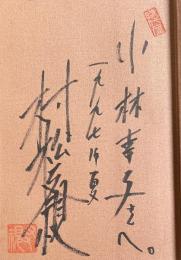 小林幸子さんへ。
一九九七年夏
村松友視